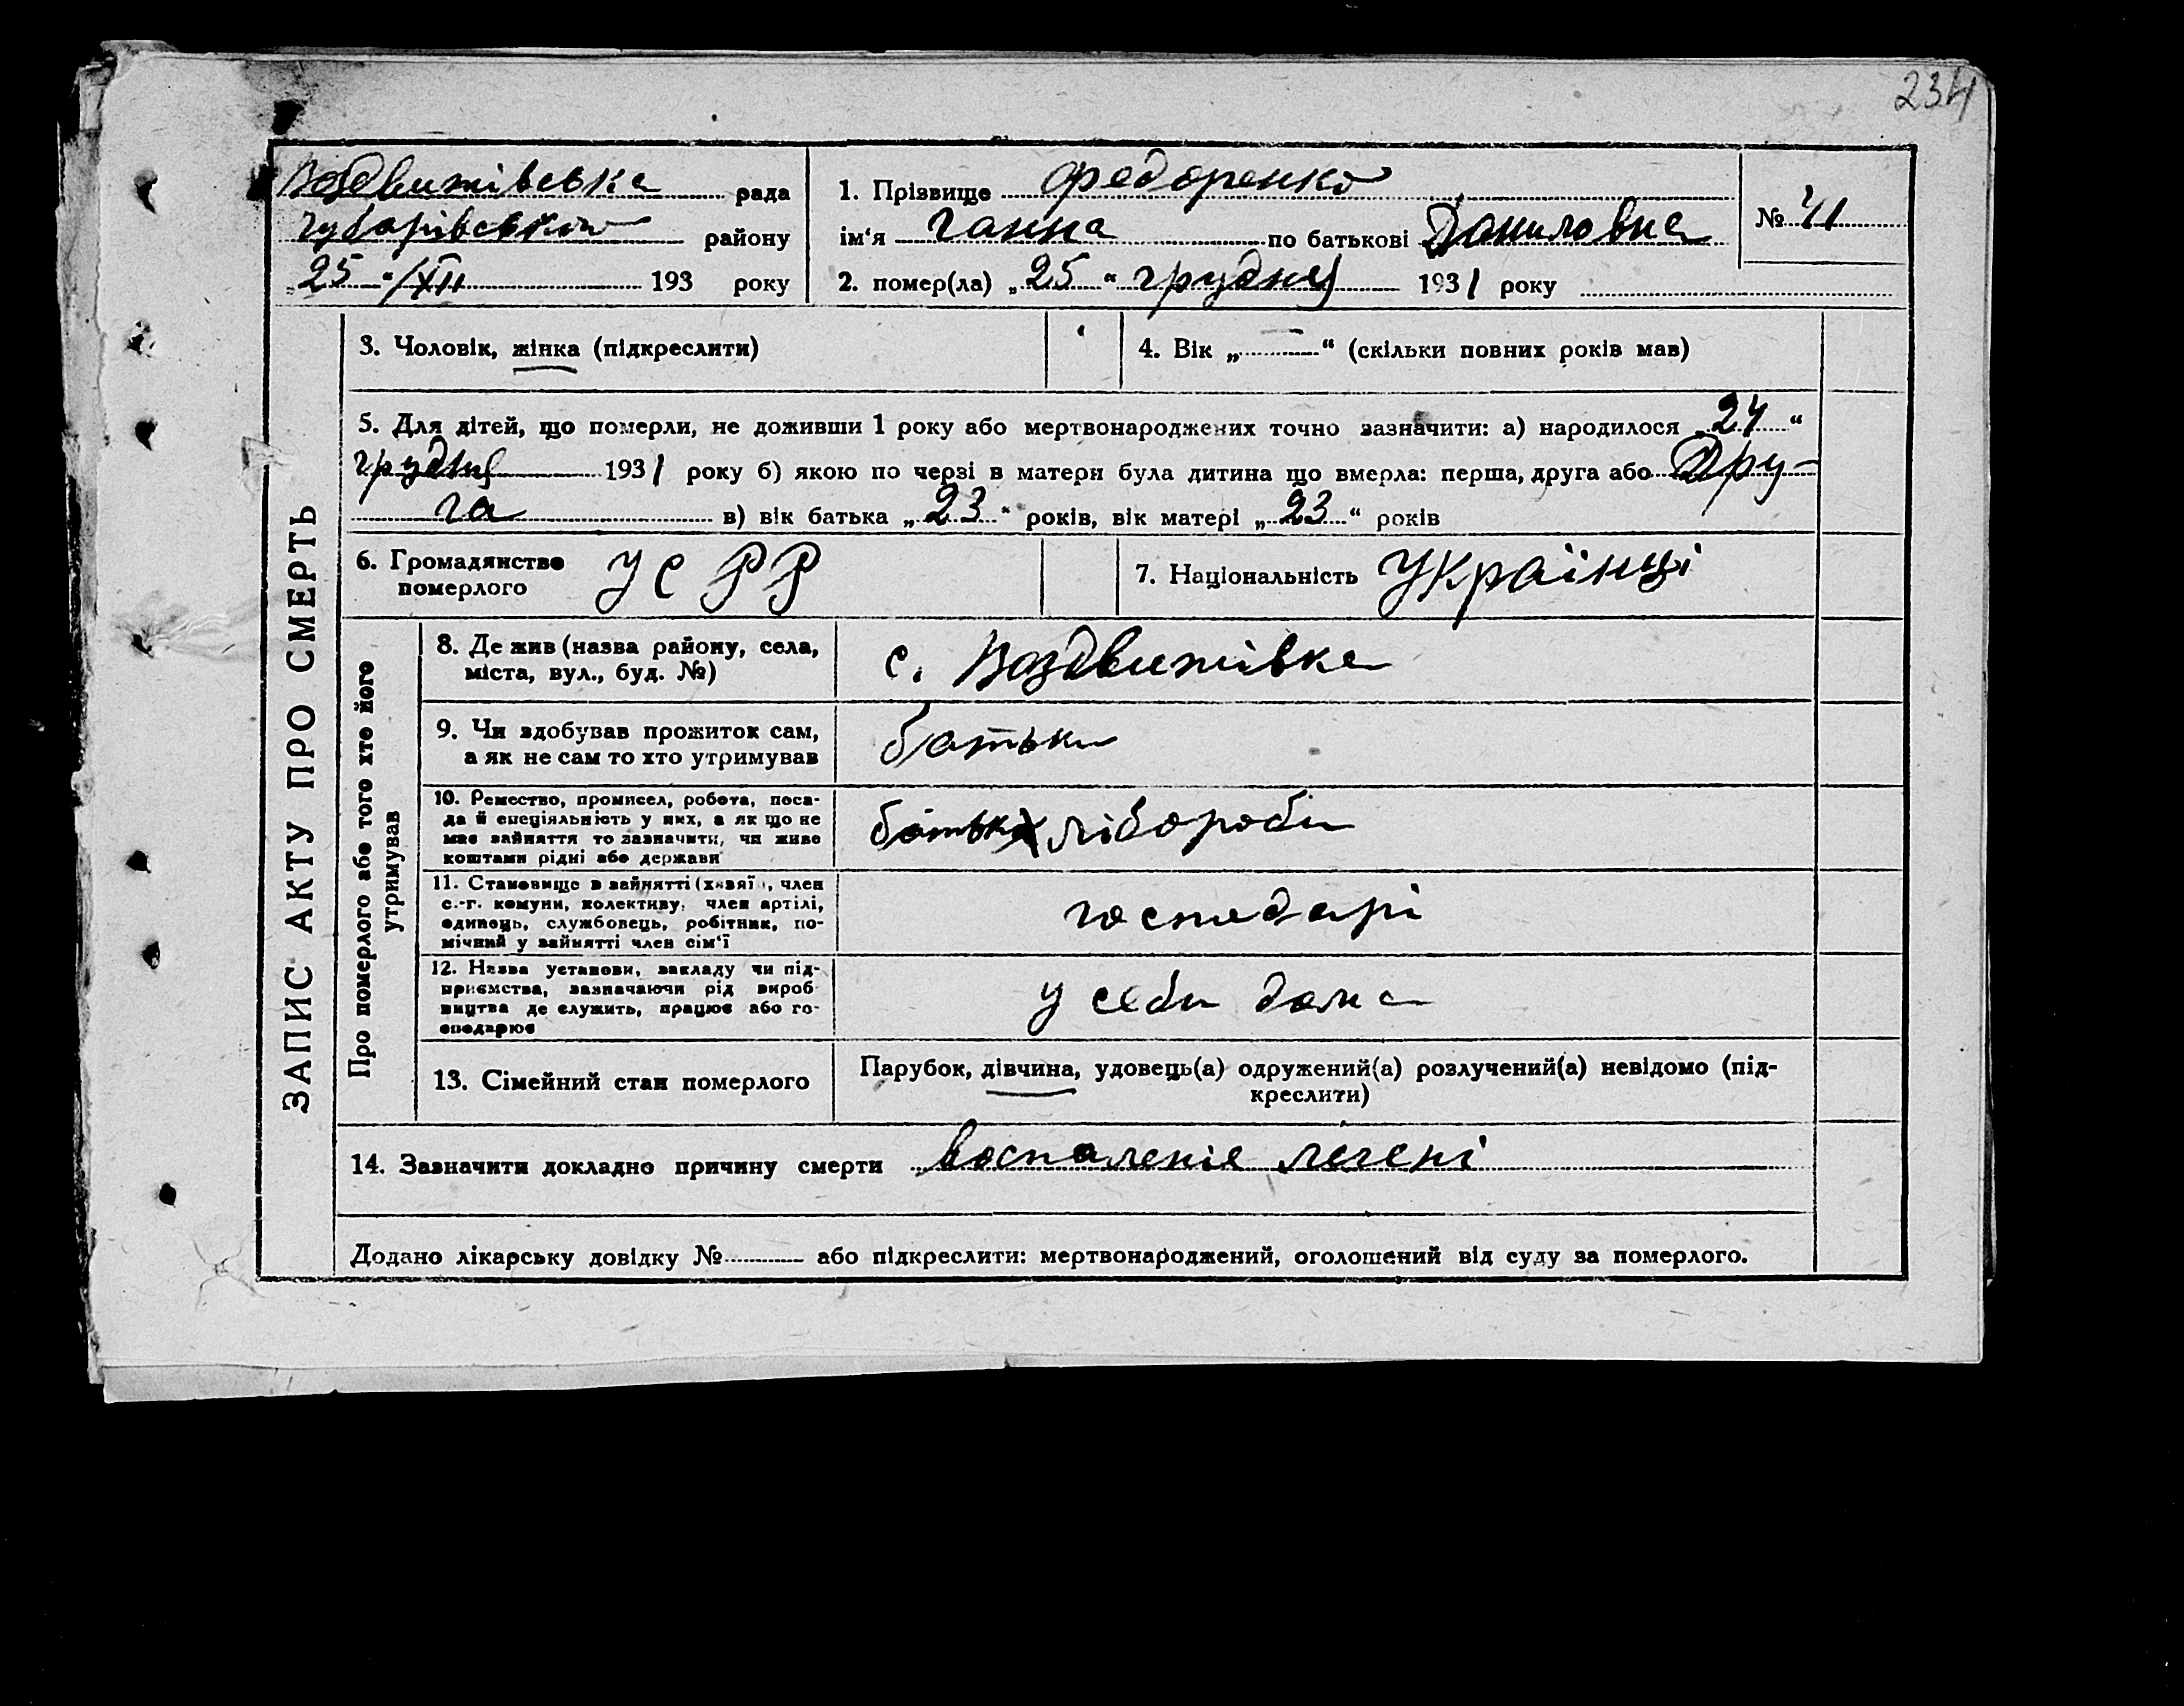 234
Воздвижівська рада
Чубарівського району
„25“ /XII 193 року
1. Прізвище Федоренко
ім‘я Ганна по батькові Даниловна
2. помер(ла) „25“ грудня 1931 року
№ 41
ЗАПИС АКТУ ПРО СМЕРТЬ
3. Чоловік, жінка (підкреслити)
4. Вік „—“ (скільки повних років мав)
5. Для дітей, що померли, не доживши 1 року або мертвонароджених точно зазначити: а) народилося „24“
грудня 1931 року б) якою по черзі в матери була дитина що вмерла: перша, друга або Дру-
га в) вік батька „23“ років, вік матері „23“ років
6. Громадянство
померлого
УСРР
7. Національність Українці
Про померлого або того хто його
утримував
8. Де жив (назва району, села,
міста, вул., буд. №)
с. Воздвижівка
9. Чи здобував прожиток сам,
а як не сам то хто утримував
батьки
10. Ремество, промисел, робота, поса-
да й спеціяльність у них, а як що не
має зайняття то зазначити, чи живе
коштами рідні або держави
хліборoби
11. Становище в зайнятті (хазяїн, член
с.-г. комуни, колективу, член артілі,
одинець, службовець, робітник, по-
мічний у зайнятті член сім‘ї
господарі
12. Назва установи, закладу чи під-
приємства, зазначаючи рід вироб
ництва де служить, працює або го-
сподарює
у себи дома
13. Сімейний стан померлого
Парубок, дівчина, удовець(а) одружений(а) розлучений(а) невідомо (під-
креслити)
14. Зазначити докладно причину смерти воспаленіе легені
Додано лікарську довідку № або підкреслити: мертвонароджений, оголошений від суду за померлого.